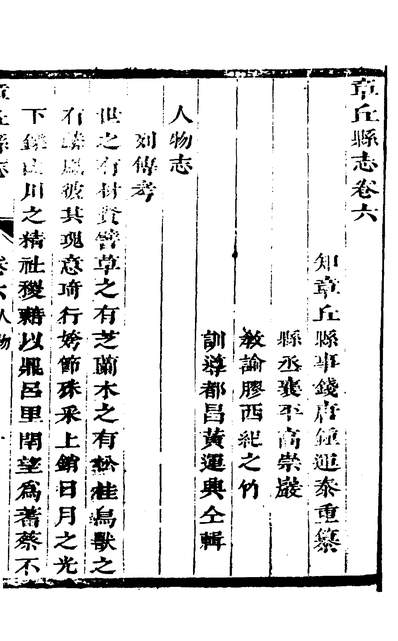 章丘縣志卷六
知章丘縣事錢唐鍾運泰重纂
縣丞襄平高崇巖
教諭膠西紀之竹
訓導都昌黃運興仝輯
人物志
列傳考
世之有材賢譬草之有芝蘭木之有松桂鳥獸之
有麟鳳彼其瑰意琦行姱節殊采上銷日月之光
下鑠山川之精社稷藉以鼎呂里閈望為蓍蔡不
章丘縣志
卷六人物
一